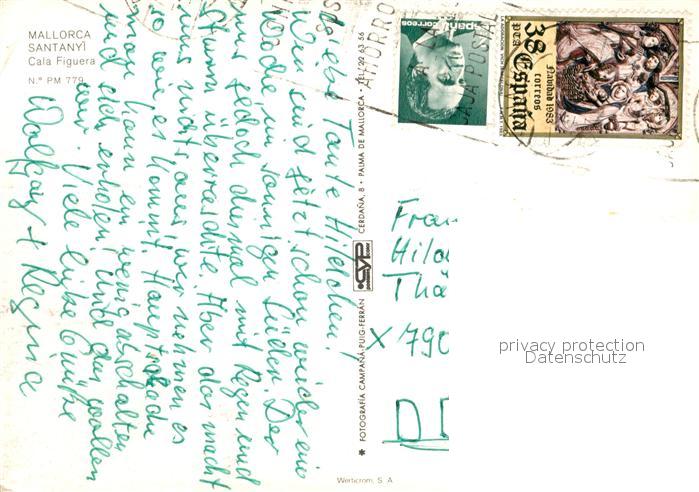 MALLORCA
SANTANYÍ
Cala Figuera
N.º PM 779
Liebe Tante Hildchen!
Wir sind jetzt schon wieder eine
Woche im sonnigen Süden. Der
uns jedoch diesmal mit Regen und
Sturm überraschte. Aber das macht
uns nichts aus wir nehmen es
so wie es kommt. Hauptsache
man kann ein wenig abschalten
und sich erholen. Und das wollen
wir. Viele liebe Grüße
Wolfgang + Regina
✱ FOTOGRAFÍA CAMPAÑÁ-PUIG-FERRÁN
CYP
CERDAÑA, 8 • PALMA DE MALLORCA • TEL. 22 63 56
AHORRO
CAJA POSTAL
España correos
Navidad 1983
correos
38 PTA
España
Frau
Hild
Thä
X 790
D D
privacy protection
Datenschutz
Werticrom, S. A.